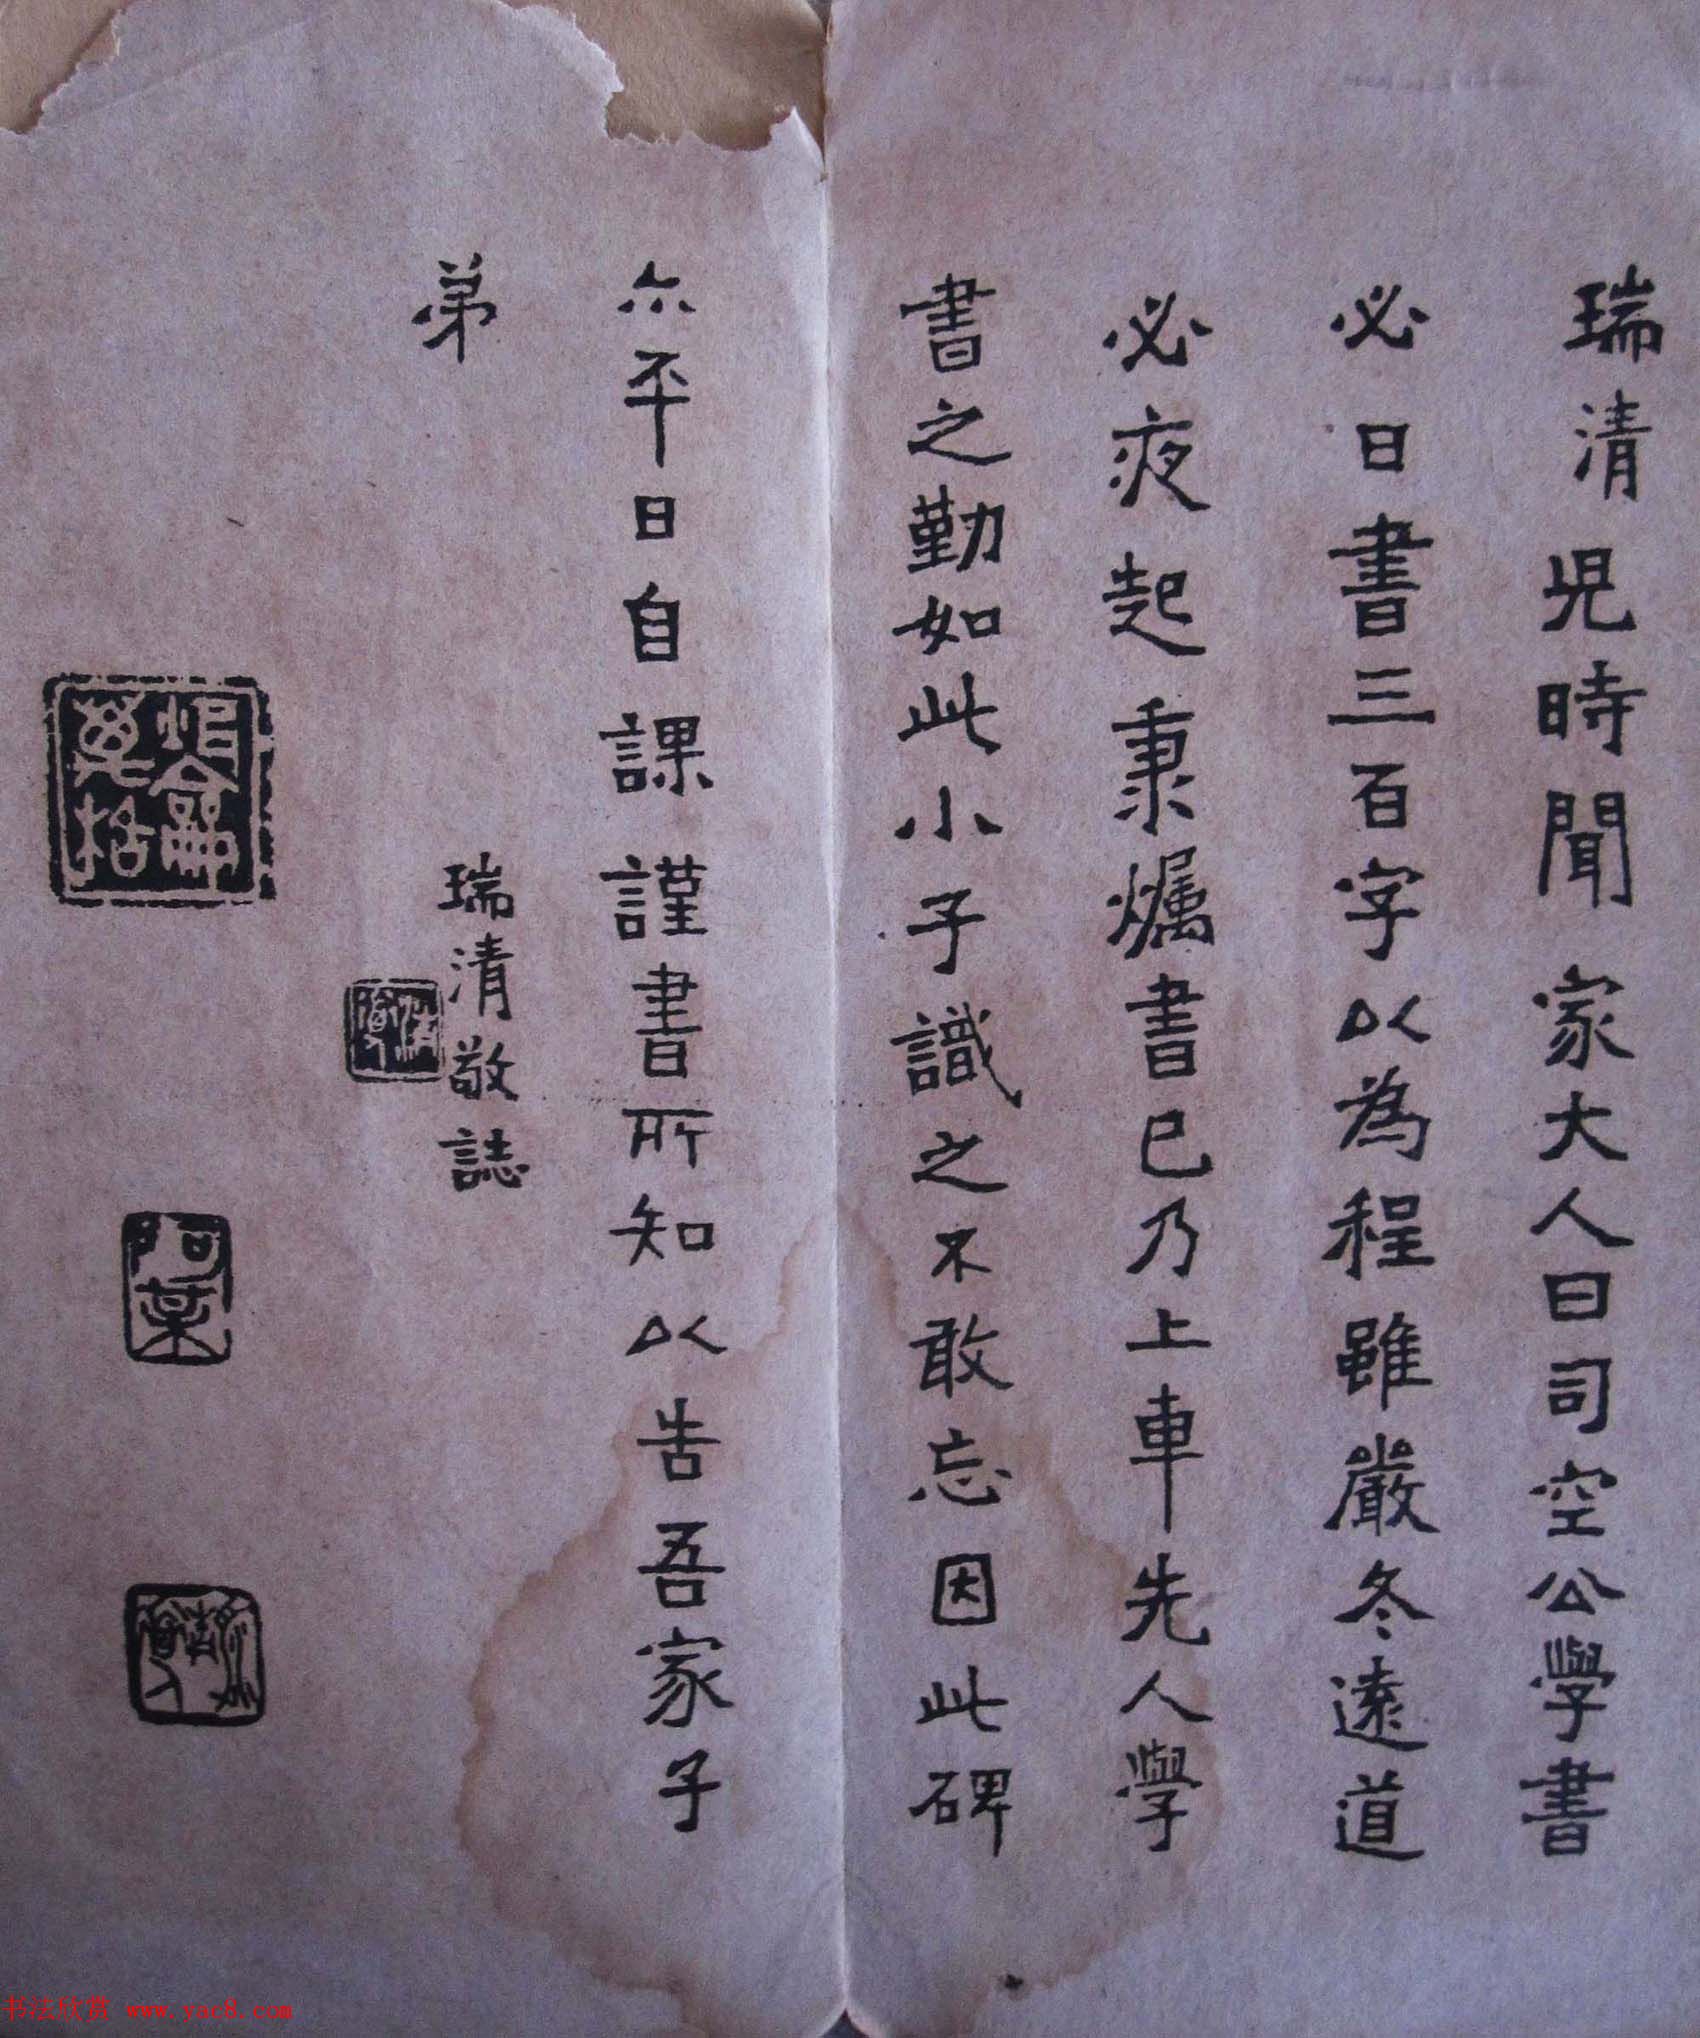 瑞清兒時聞家大人曰司空公學書
必日書三百字以為程雖嚴冬遠道
必夜起秉爥書已乃上車先人學
書之勤如此小子識之不敢忘因此碑
亦平日自課謹書所知以告吾家子
弟
瑞清敬誌
阿某
书法欣赏 www.yac8.com